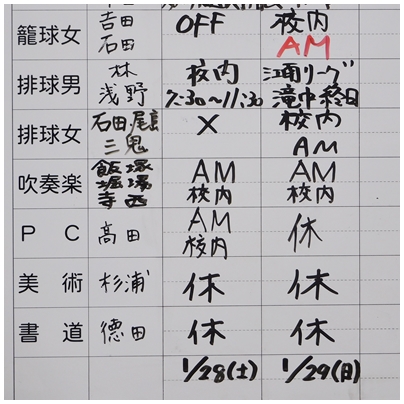 籠球女 吉田 石田 OFF 校内 AM
排球男 林 浅野 校内 7:30~11:30 江南リーグ 滝中終日
排球女 石田 尾島 三鬼 × 校内 AM
吹奏楽 飯塚 堀場 寺西 AM 校内 AM 校内
PC 高田 AM 校内 休
美術 杉浦 休 休
書道 徳田 休 休
1/28(土) 1/29(日)